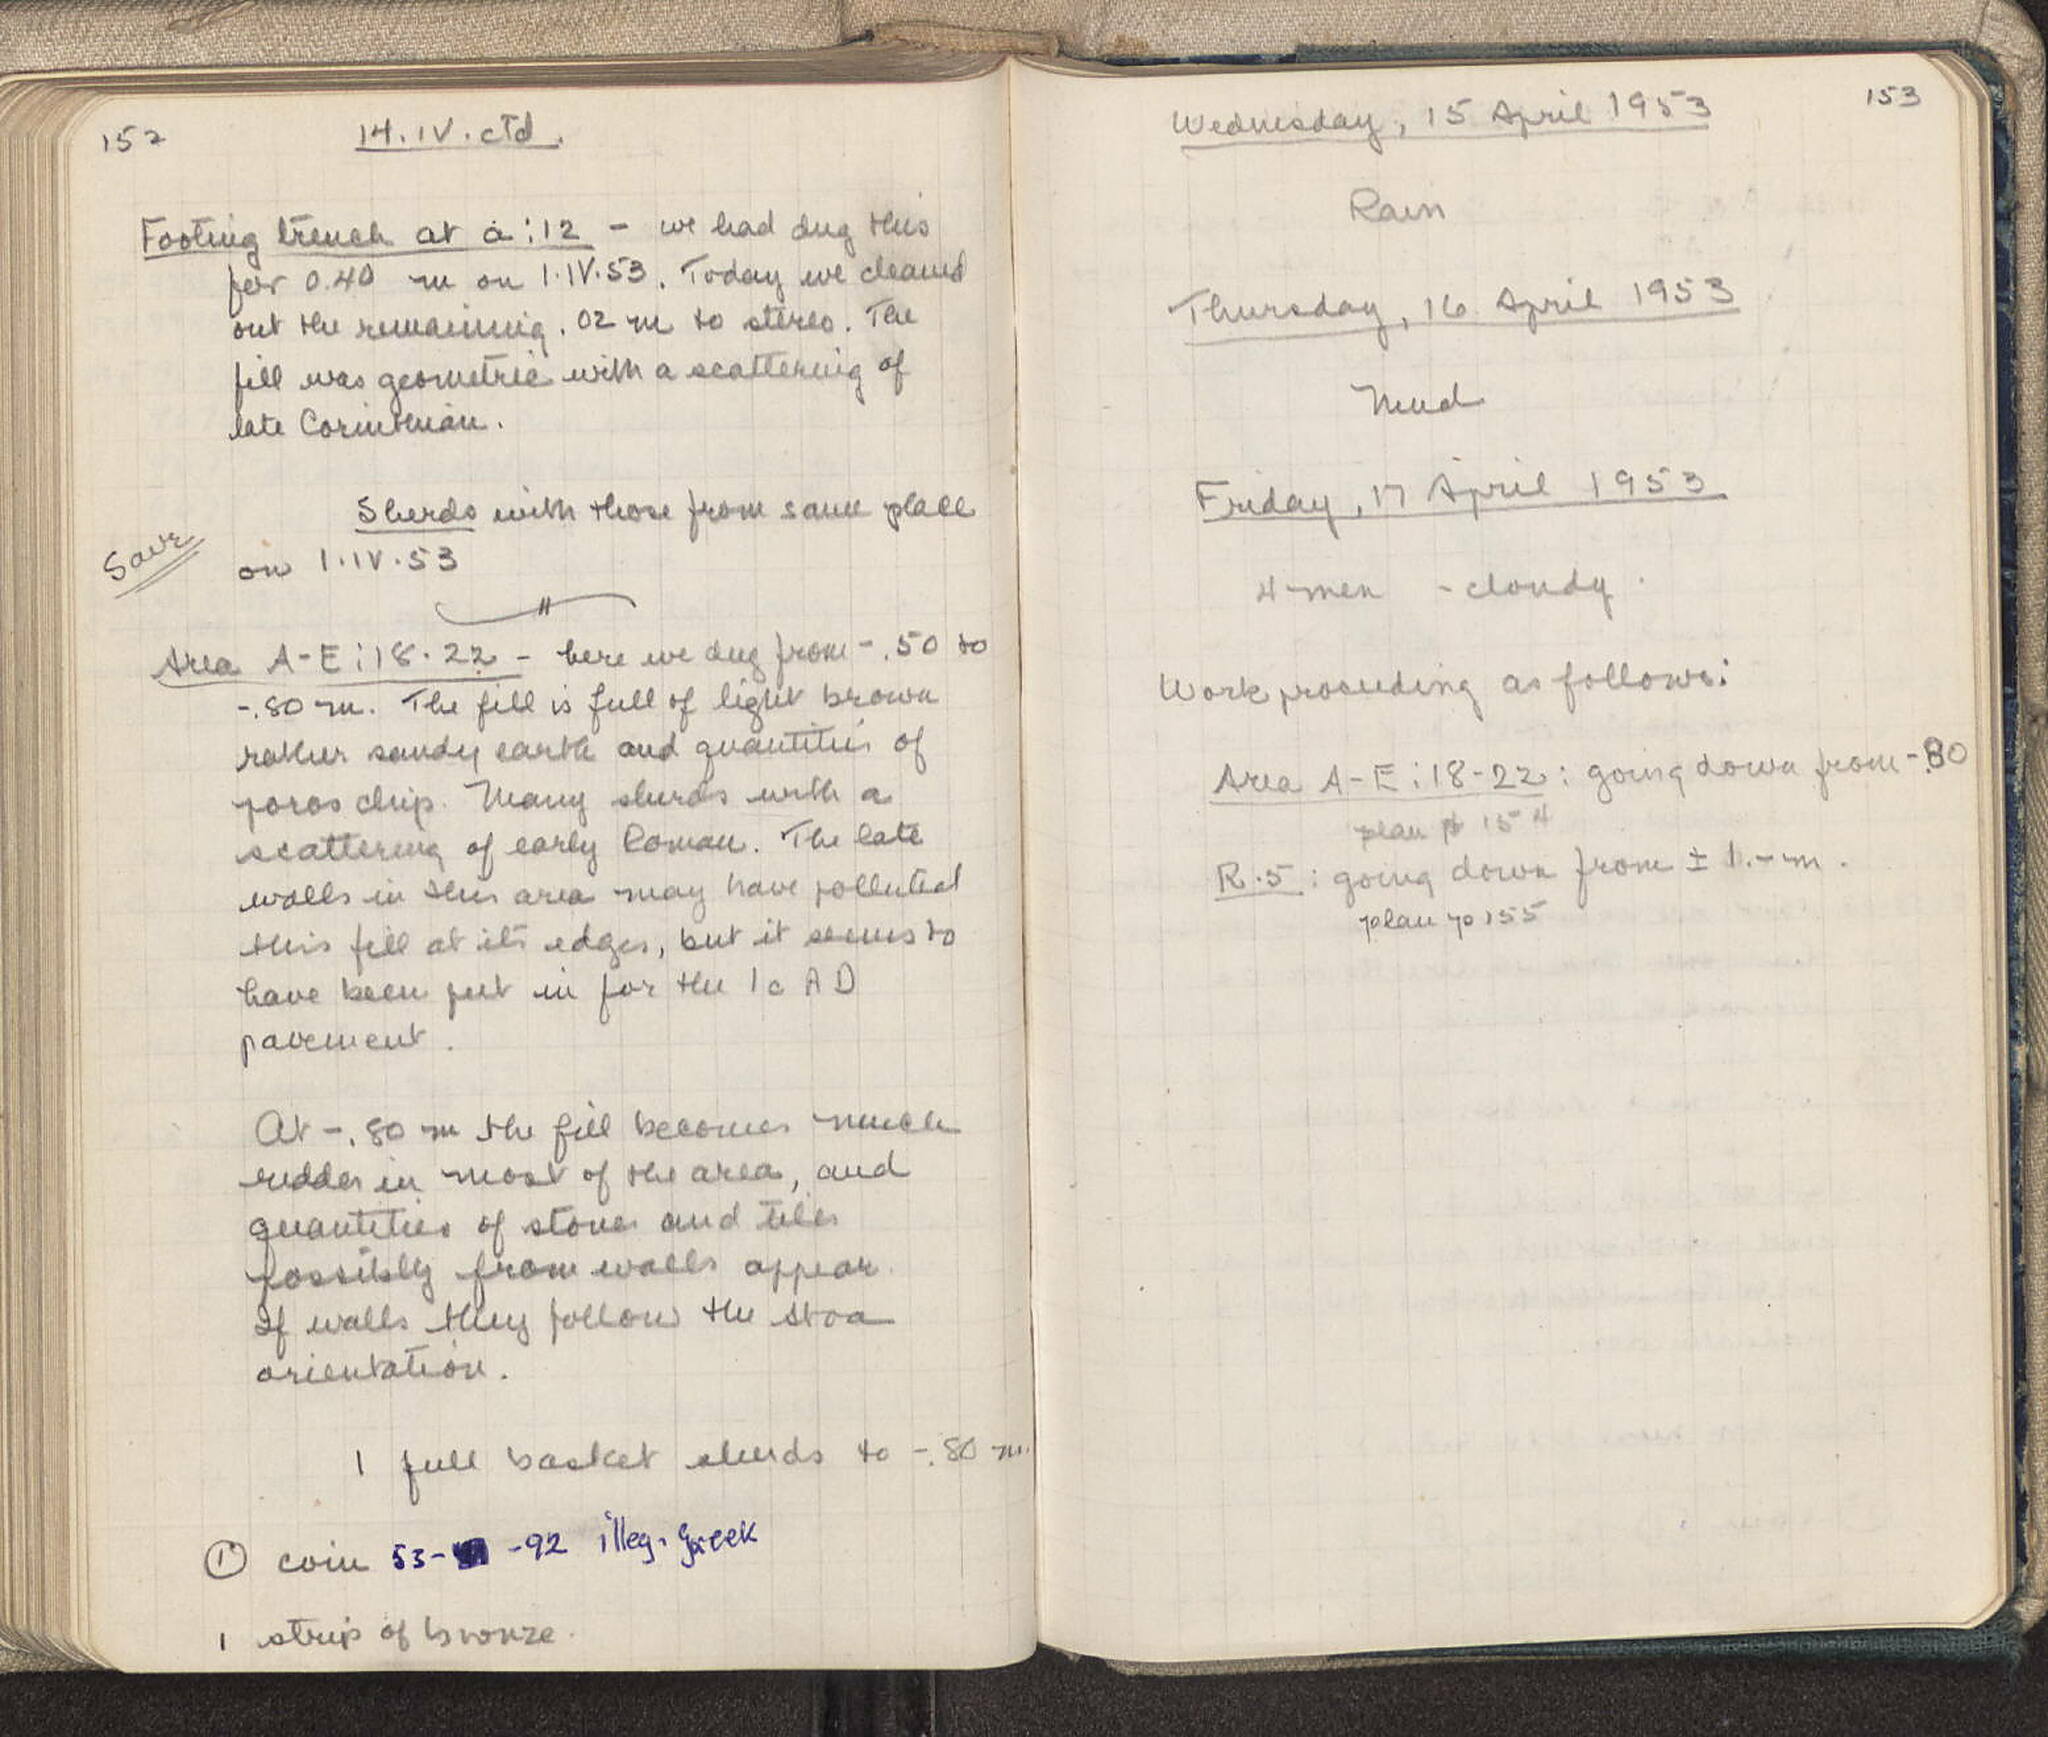 152
14.IV.ctd.
Footing trench at a:12 - we had dug this
for 0.40 m on 1.IV.53. Today we cleaned
out the remaining .02 m to stereo. The
fill was geometric with a scattering of
late Corinthian.
Sherds with those from same place
Save
on 1.IV.53
Area A-E:18-22 - here we dug from -.50 to
-.80 m. The fill is full of light brown
rather sandy earth and quantities of
poros chip. Many sherds with a
scattering of early Roman. The late
walls in this area may have polluted
this fill at its edges, but it seems to
have been put in for the 1c AD
pavement.
At -.80 m the fill becomes much
redder in most of the area, and
quantities of stones and tiles
possibly from walls appear.
If walls they follow the stoa
orientation.
1 full basket sherds to -.80 m.
① coin 53- -92 illeg. Greek
1 strip of bronze.
153
Wednesday, 15 April 1953
Rain
Thursday, 16 April 1953
Mud
Friday, 17 April 1953
4 men - cloudy.
Work proceeding as follows:
Area A-E:18-22: going down from -.80
plan p 154
R.5: going down from ± 1.-m.
plan p 155